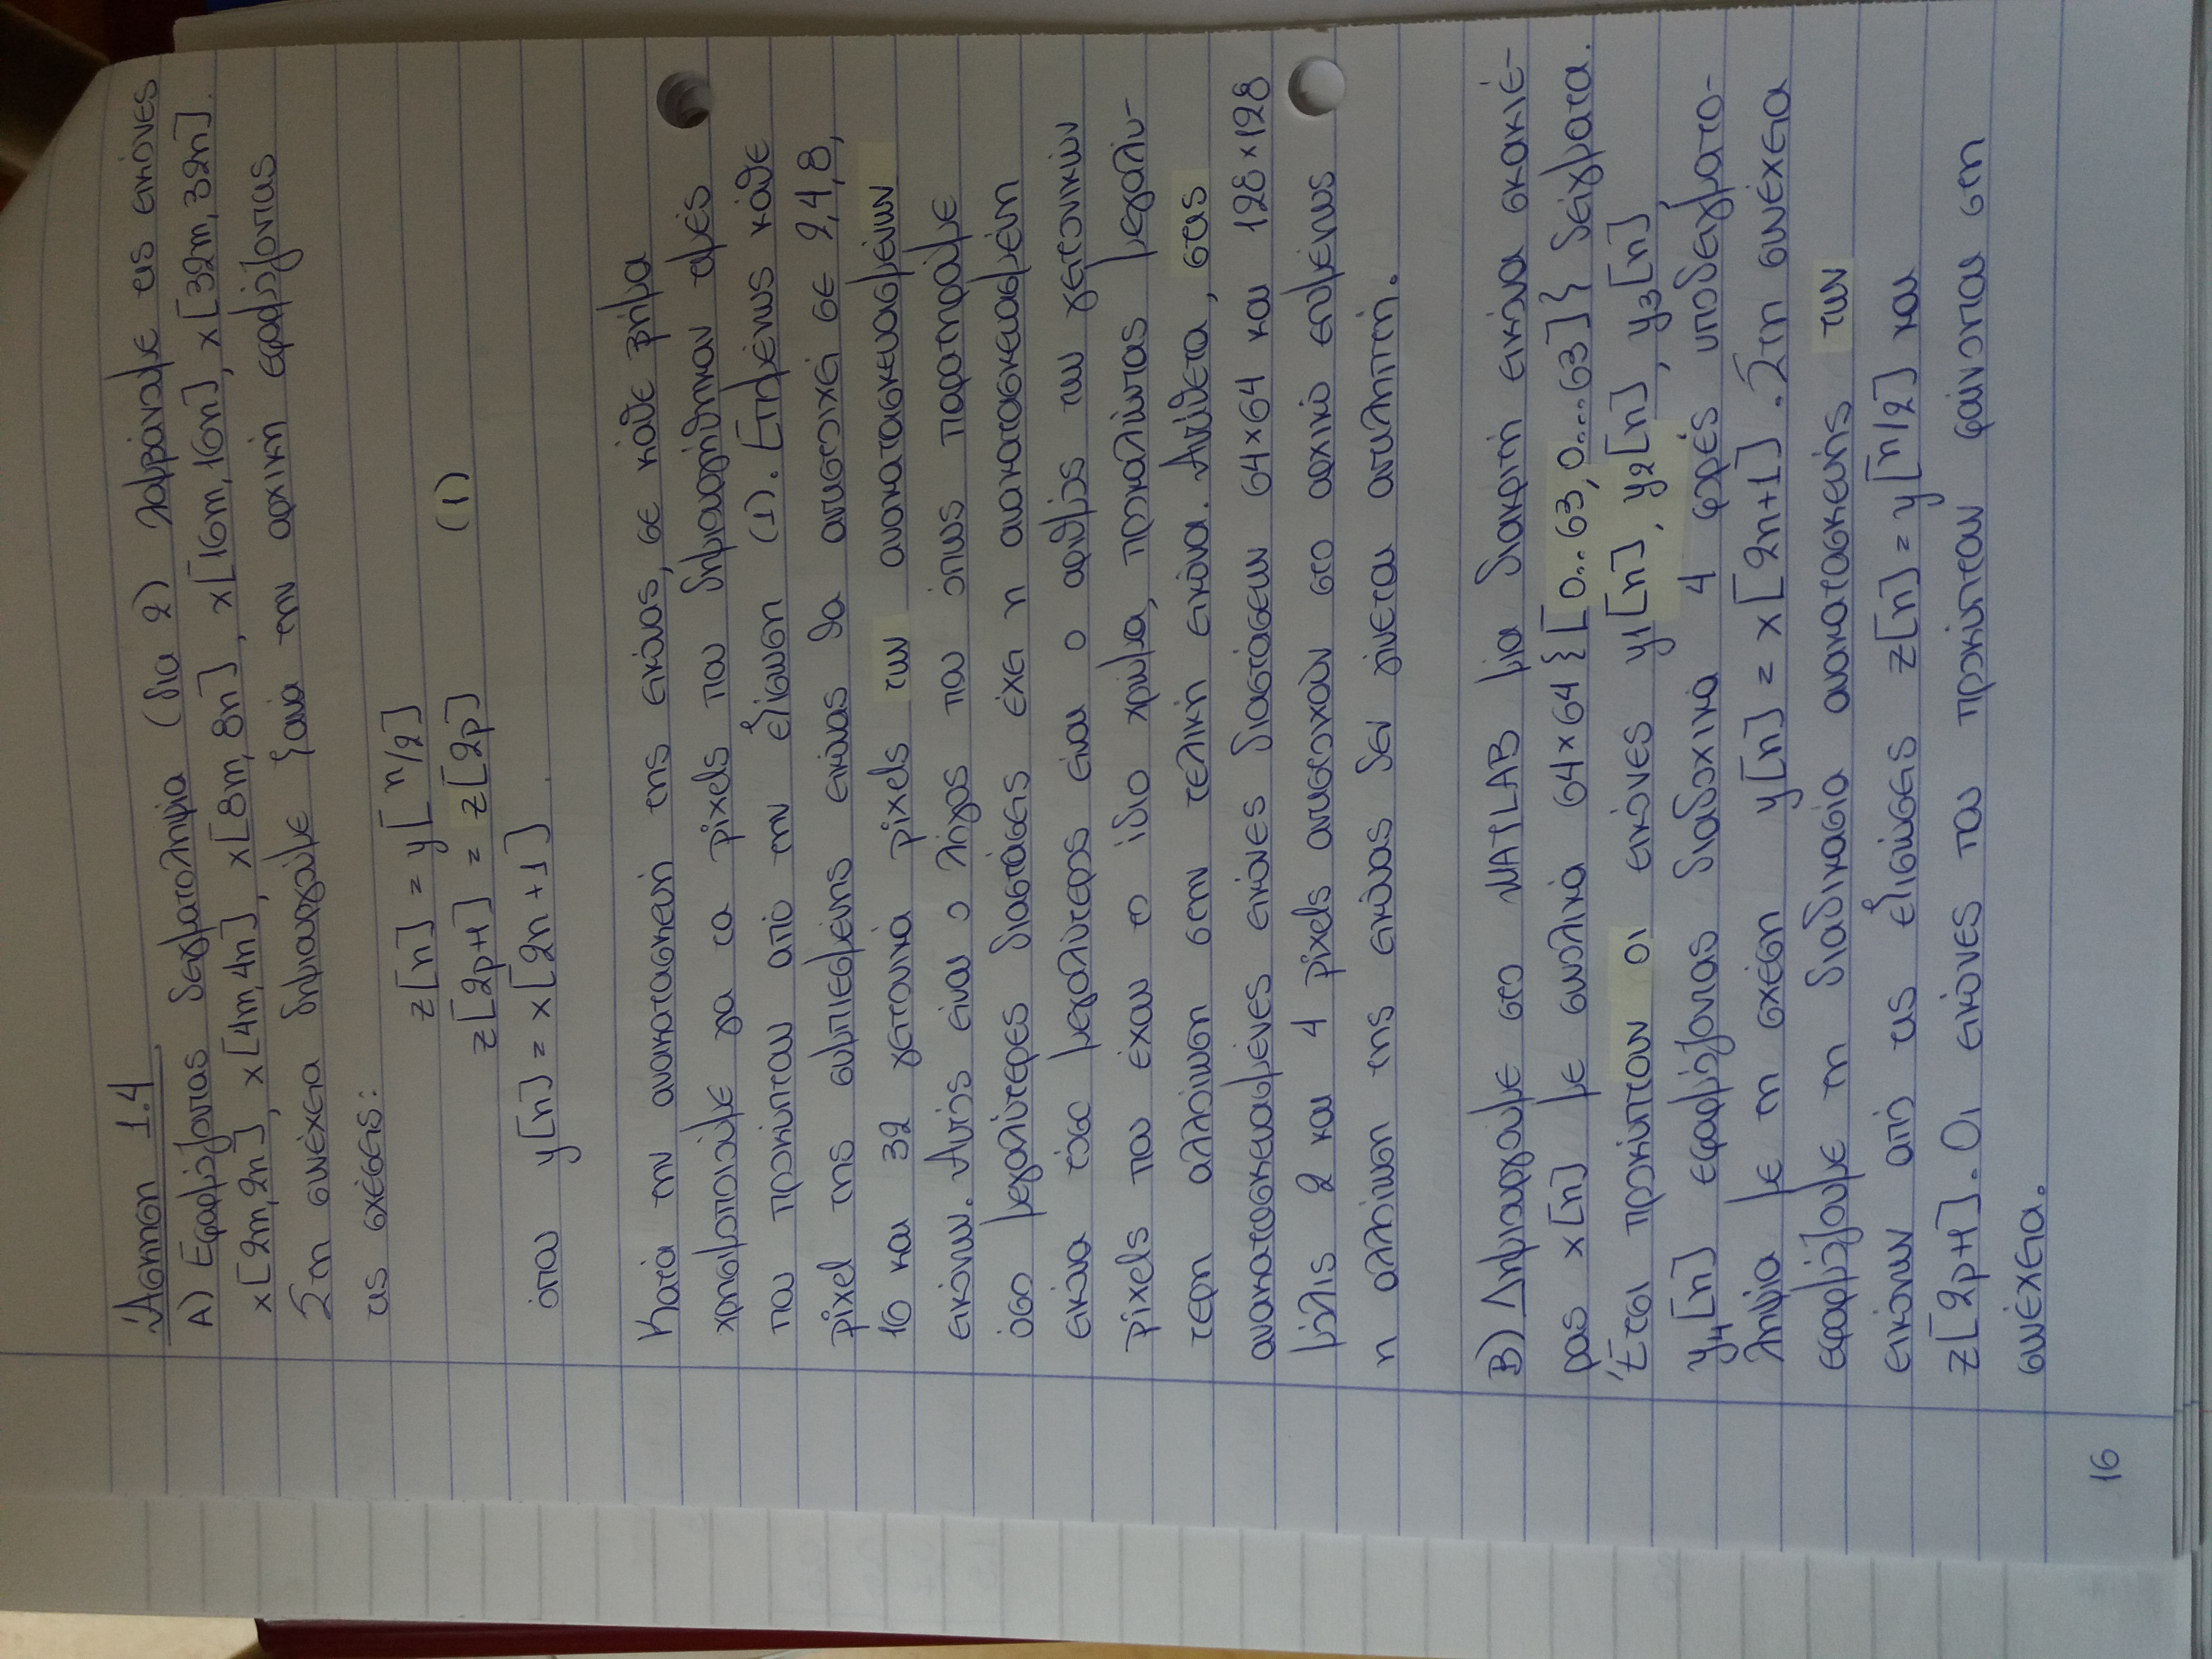 Άσκηση 1.4
Α) Εφαρμόζοντας δειγματοληψία (δια 2) λαμβάνουμε τις εικόνες
x[2m,2n], x[4m,4n], x[8m,8n], x[16m,16n], x[32m,32n].
Στη συνέχεια δημιουργούμε ξανά την αρχική εφαρμόζοντας
τις σχέσεις:
z[n] = y[n/2]
z[2p+1] = z[2p] (1)
όπου y[n] = x[2n+1].
Κατά την ανακατασκευή της εικόνας, σε κάθε βήμα
χρησιμοποιούμε για τα pixels που δημιουργήθηκαν τιμές
που προκύπτουν από την εξίσωση (1). Επομένως κάθε
pixel της συμπιεσμένης εικόνας θα αντιστοιχεί σε 2,4,8,
16 και 32 γειτονικά pixels των ανακατασκευασμένων
εικόνων. Αυτός είναι ο λόγος που όπως παρατηρούμε
όσο μεγαλύτερες διαστάσεις έχει η ανακατασκευασμένη
εικόνα τόσο μεγαλύτερος είναι ο αριθμός των γειτονικών
pixels που έχουν το ίδιο χρώμα, προκαλώντας μεγαλύ-
τερη αλλοίωση στην τελική εικόνα. Αντίθετα, στις
ανακατασκευασμένες εικόνες διαστάσεων 64×64 και 128×128
μόλις 2 και 4 pixels αντιστοιχούν στο αρχικό επομένως
η αλλοίωση της εικόνας δεν γίνεται αντιληπτή.
Β) Δημιουργούμε στο MATLAB μία διακριτή εικόνα σκακιέ-
ρας x[n] με συνολικά 64×64 {[0..63,0....63]} δείγματα.
Έτσι προκύπτουν οι εικόνες y1[n], y2[n], y3[n],
y4[n] εφαρμόζοντας διαδοχικά 4 φορές υποδειγματο-
ληψία με τη σχέση y[n] = x[2n+1]. Στη συνέχεια
εφαρμόζουμε τη διαδικασία ανακατασκευής των
εικόνων από τις εξισώσεις z[n] = y[n/2] και
z[2p+1]. Οι εικόνες που προκύπτουν φαίνονται στη
συνέχεια.
16